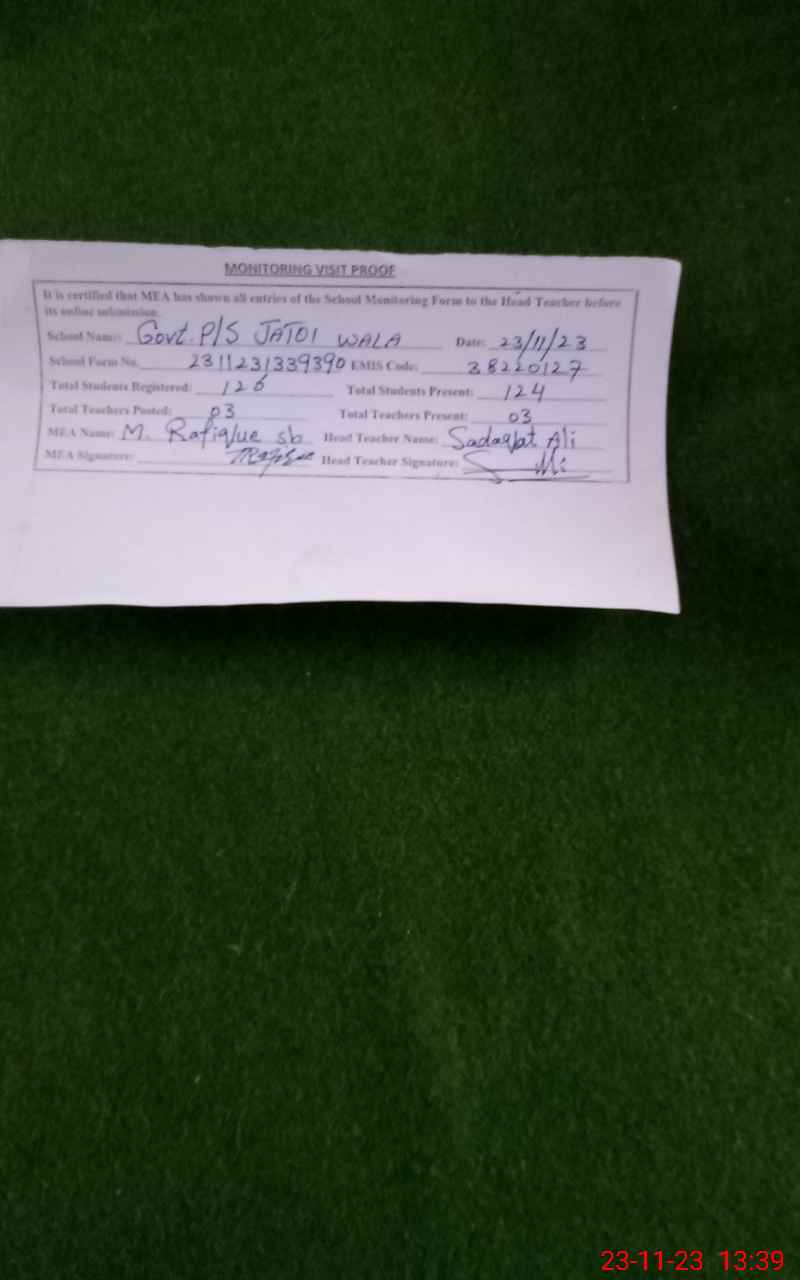 MONITORING VISIT PROOF
It is certified that MEA has shown all entries of the School Monitoring Form to the Head Teacher before
its online submission.
School Name: Govt. P/S JATOI WALA Date: 23/11/23
School Form No. 2311231339390 EMIS Code: 38220127
Total Students Registered: 126 Total Students Present: 124
Total Teachers Posted: 03 Total Teachers Present: 03
MEA Name: M. Rafique sb Head Teacher Name: Sadaqat Ali
MEA Signature: Head Teacher Signature:
23-11-23 13:39